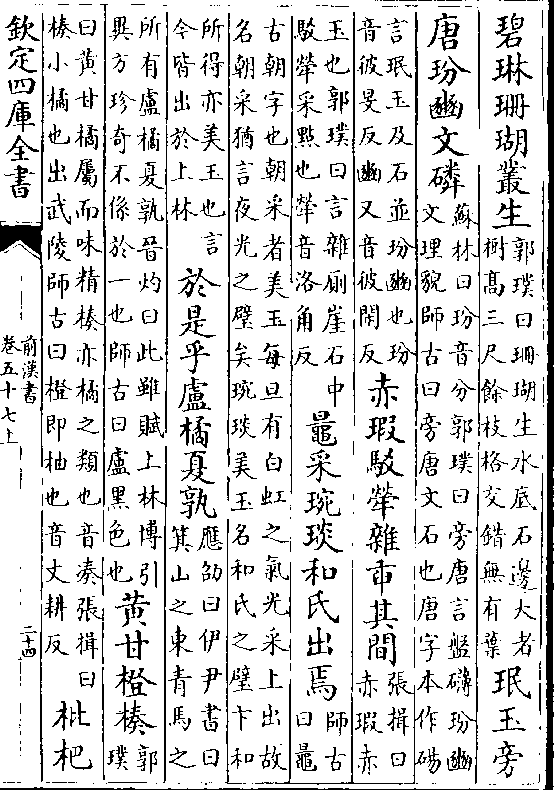 碧琳珊瑚叢生郭璞曰珊瑚生水底石邊大者
樹髙三尺餘枝格交錯無有葉珉玉旁
唐玢豳文磷蘇林曰玢音分郭璞曰旁唐言盤礴玢豳
文理貌師古曰旁唐文石也唐字本作碭
言珉玉及石並玢豳也玢
音彼旻反豳又音彼閑反赤瑕駮犖雜臿其間張揖曰
赤瑕赤
玉也郭璞曰言雜厠崖石中
駮犖采點也犖音洛角反鼂采琬琰和氏出焉師古
曰鼂
古朝字也朝采者美玉每旦有白虹之氣光采上出故
名朝采猶言夜光之璧矣琬琰美玉名和氏之璧卞和
所得亦美玉也言
今皆出於上林於是乎盧橘夏孰應劭曰伊尹書曰
箕山之東青馬之
所有盧橘夏孰晉灼曰此雖賦上林博引
異方珍奇不係於一也師古曰盧黑色也黄甘橙楱郭
璞
曰黄甘橘屬而味精楱亦橘之類也音湊張揖曰
楱小橘也出武陵師古曰橙即柚也音丈耕反枇杷
欽定四庫全書
前漢書
卷五十七上
二十四